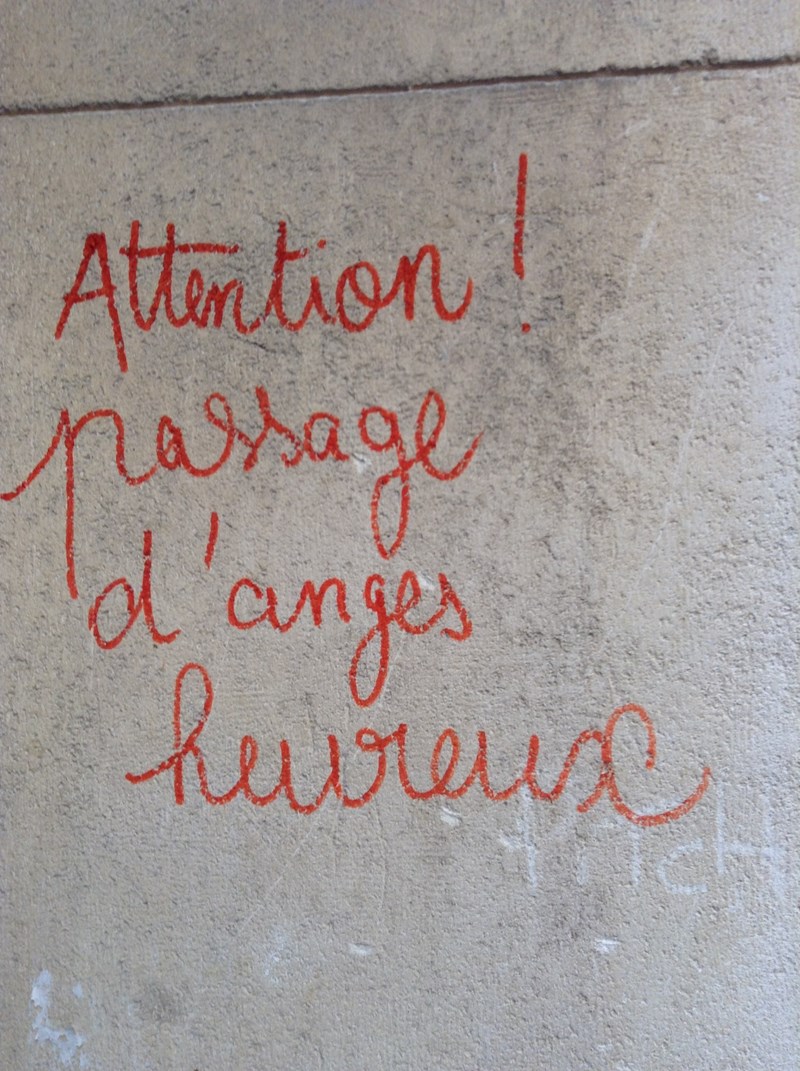 Attention !
passage
d'anges
heureux